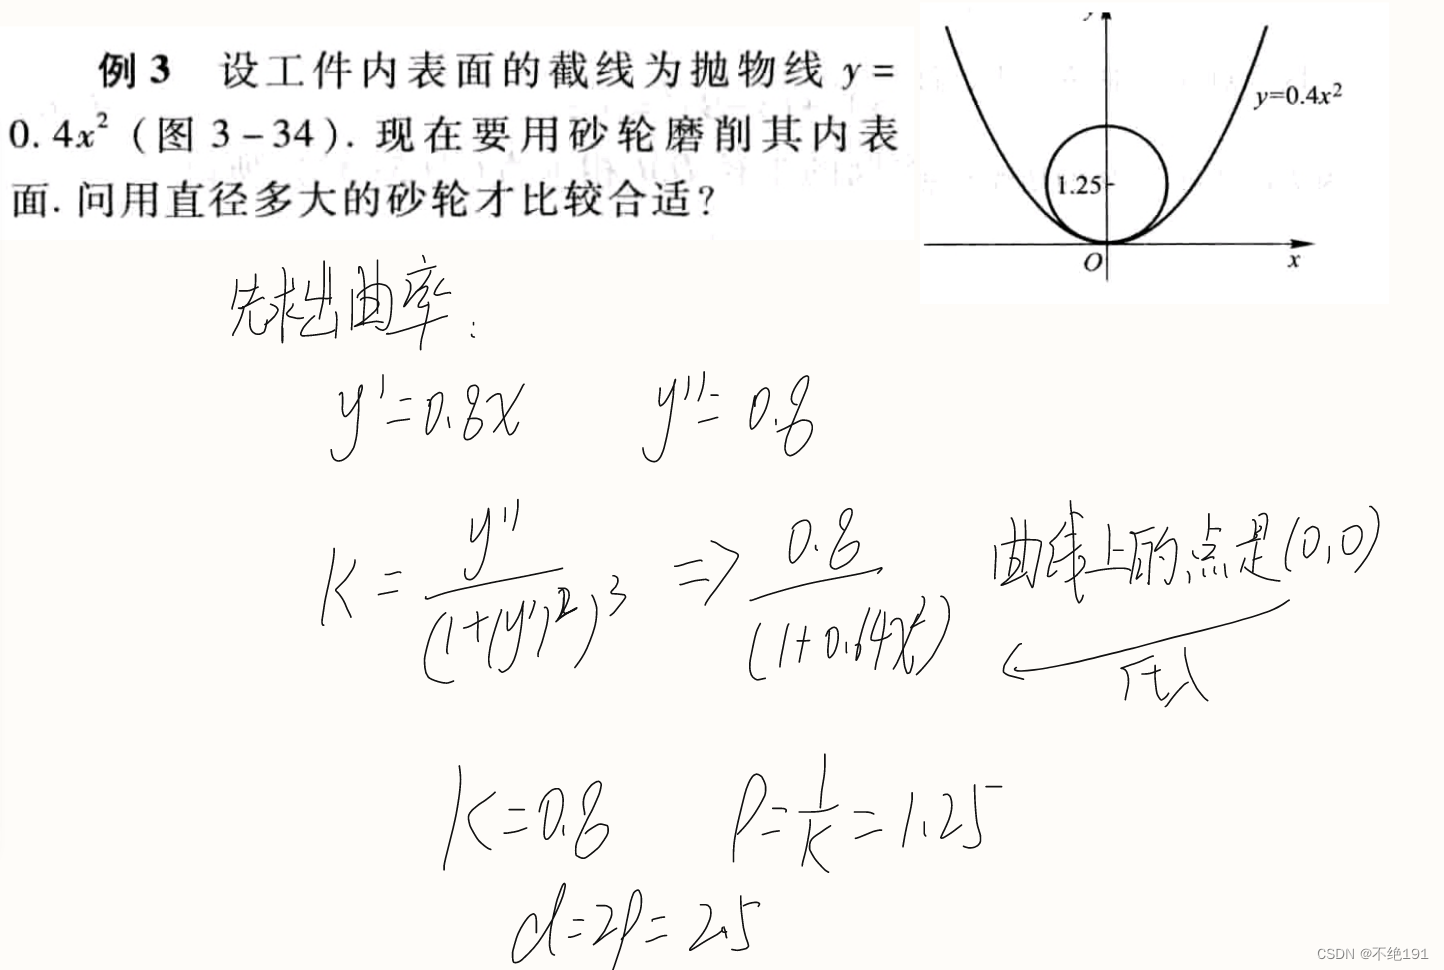 例 3 设工件内表面的截线为抛物线 y =
0.4x² (图 3-34). 现在要用砂轮磨削其内表
面. 问用直径多大的砂轮才比较合适?
y
y=0.4x²
1.25
O
x
先求出曲率:
y'=0.8x y''=0.8
K = y''/(1+(y')²)³ => 0.8/(1+0.64x²) 曲线上的点是(0,0)
代入
K=0.8 ρ=1/K=1.25
d=2ρ=2.5
CSDN @不绝191